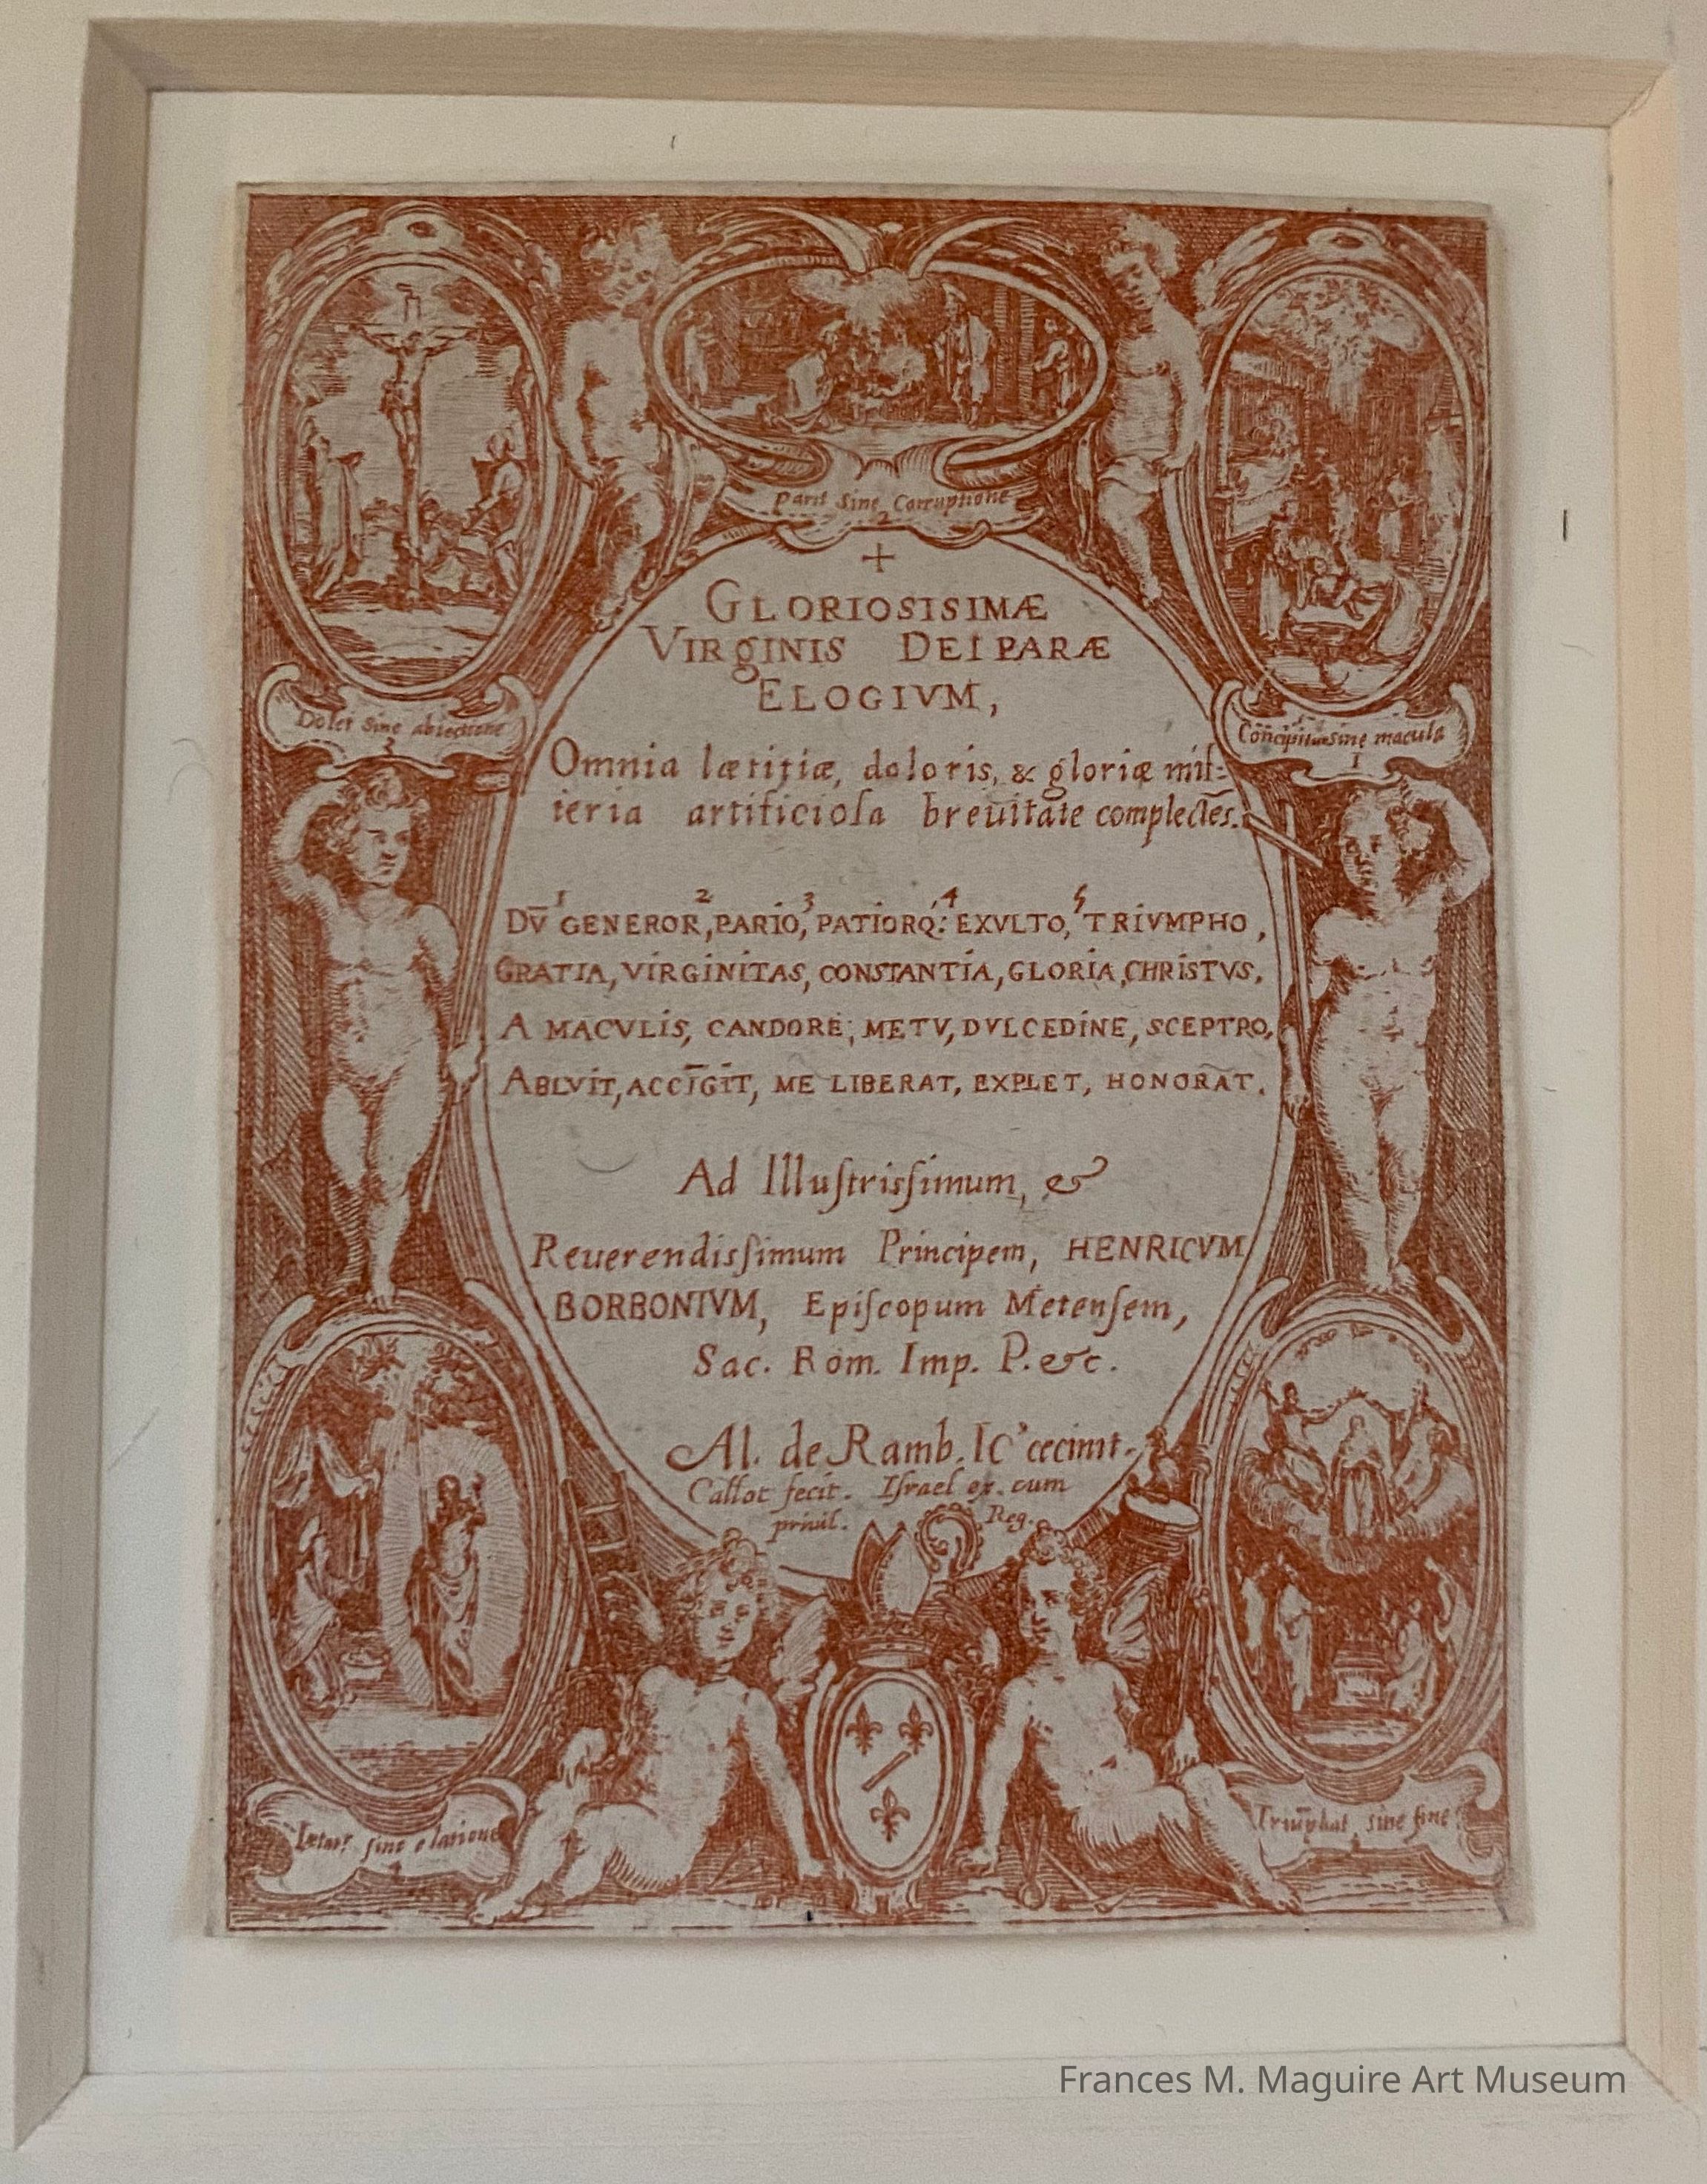 Parit Sine Corruptione
2
Dolet Sine abiectione
3
Concipitur sine macula
1
+
GLORIOSISIMÆ
VIRGINIS DEIPARÆ
ELOGIVM,
Omnia lætitiæ, doloris, & gloriæ miſ=
teria artificioſa breuitate complectēs.
1 2 3 4 5
DV̄ GENEROR, PARIO, PATIORQ: EXVLTO, TRIVMPHO,
GRATIA, VIRGINITAS, CONSTANTIA, GLORIA, CHRISTVS,
A MACVLIS, CANDORE; METV, DVLCEDINE, SCEPTRO,
ABLVIT, ACCĪGIT, ME LIBERAT, EXPLET, HONORAT.
Ad Illuſtrisſimum, &
Reuerendisſimum Principem, HENRICVM
BORBONIVM, Epiſcopum Metenſem,
Sac. Rom. Imp. P. &c.
Al. de Ramb. IC' cecinit.
Callot fecit. Iſrael ex. cum
priuil. Reg.
Lætat' sine elatione
4
Triūphat sine fine
Frances M. Maguire Art Museum